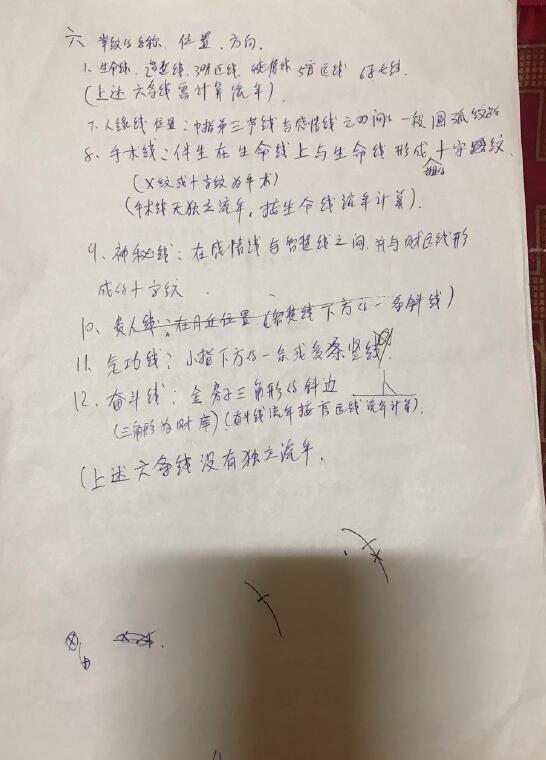 六 掌纹的名称、位置、方向.
1. 生命线 2智慧线 3财运线 4感情线 5方运线 6好运线
(上述六条线需计算流年).
7. 人缘线位置:中指第三节线与感情线之间的一段圆弧纹路
8、手术线:伴生在生命线上与生命线形成十字纹.
(X纹或十字纹为手术)
(手术线无独立流年,按生命线流年计算).
9、神秘线:在感情线与智慧线之间,并与财运线形
成的十字纹.
10、贵人线:在月丘位置(智慧线下方的一条斜线)
11、气功线:小指下方的一条或多条竖线
12、奋斗线:金 三角形的斜边
(三角形为财库)(奋斗线流年按 运线流年计算).
(上述六条线没有独立流年.